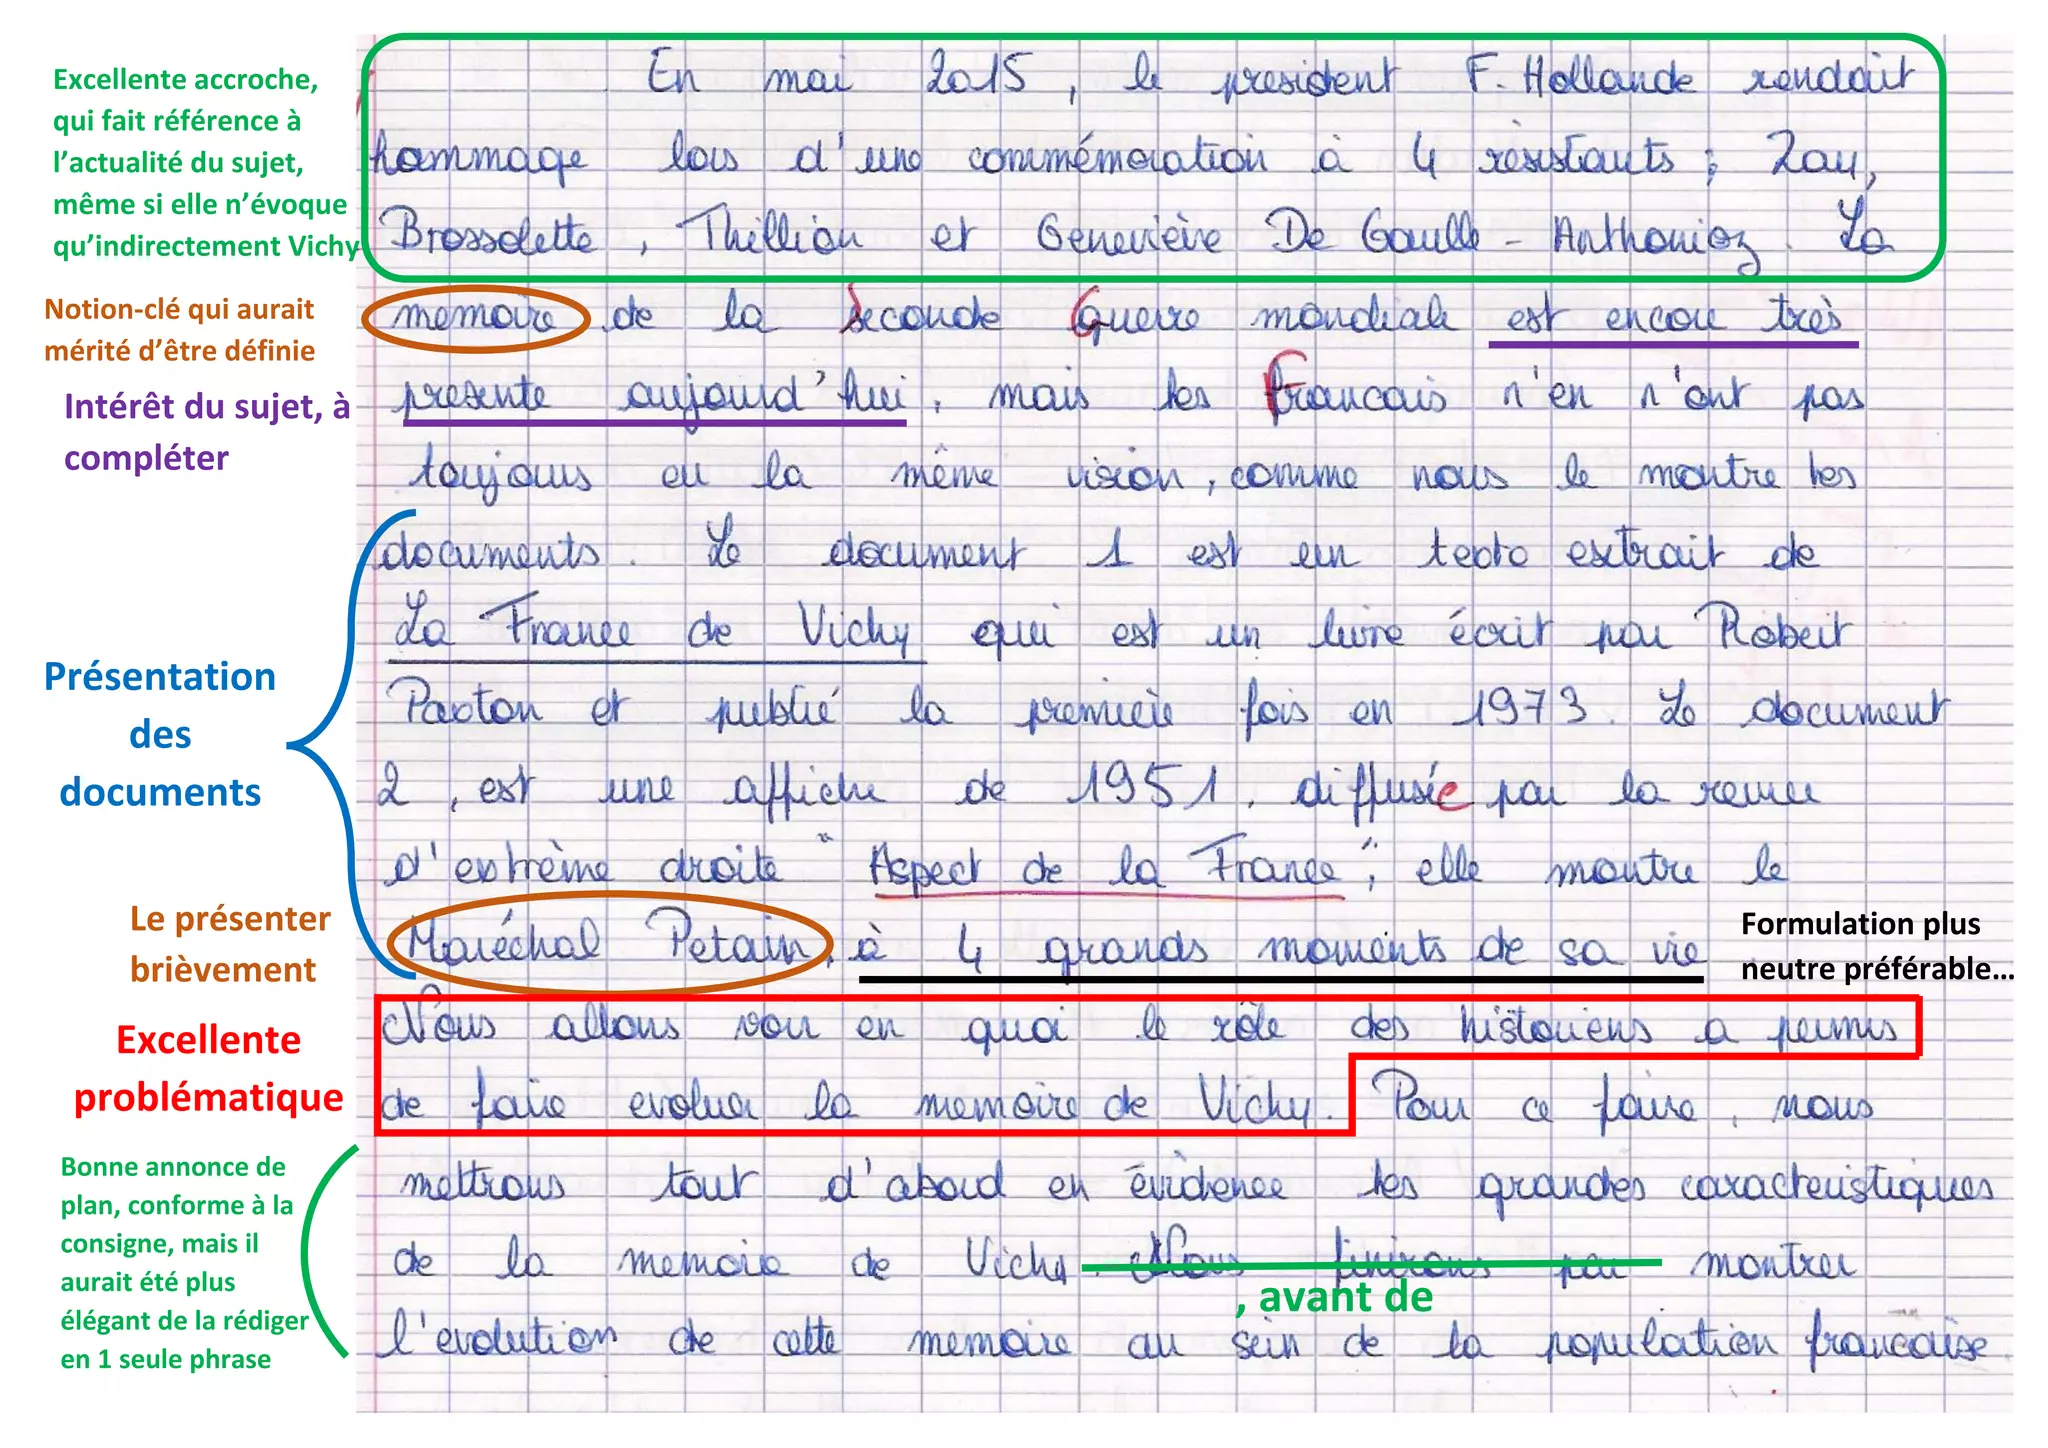 Excellente accroche,
qui fait référence à
l'actualité du sujet,
même si elle n'évoque
qu'indirectement Vichy
Notion-clé qui aurait
mérité d'être définie
Intérêt du sujet, à
compléter
Présentation
des
documents
Le présenter
brièvement
Excellente
problématique
Bonne annonce de
plan, conforme à la
consigne, mais il
aurait été plus
élégant de la rédiger
en 1 seule phrase
En mai 2015, le president F. Hollande rendait
hommage lors d'une commémoration à 4 résistants ; Zay,
Brossolette, Thillion et Geneviève De Gaulle - Anthonioz. La
memoire de la Seconde Guerre mondiale est encore très
presente aujourd'hui, mais les Francais n'en n'ont pas
toujours eu la même vision, comme nous le montre les
documents. Le document 1 est un texte extrait de
La France de Vichy qui est un livre écrit par Robert
Paxton et publié la premiere fois en 1973. Le document
2, est une affiche de 1951, diffusée par la revue
d'extrème droite "Aspect de la France", elle montre le
Maréchal Petain, à 4 grands moments de sa vie
Formulation plus
neutre préférable…
Nous allons voir en quoi le rôle des historiens a permis
de faire evoluer la memoire de Vichy. Pour ce faire, nous
mettrons tout d'abord en évidence les grandes caracteristiques
de la memoire de Vichy. Nous finirons par montrer
, avant de
l'evolution de cette memoire au sein de la population francaise.